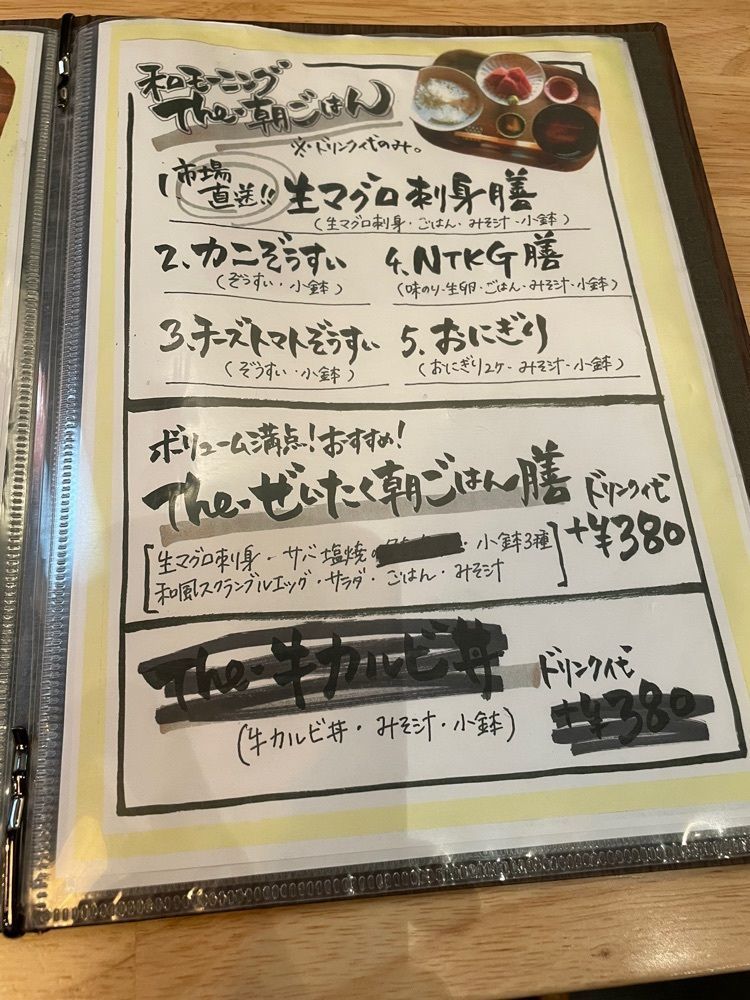 和モーニング
The・朝ごはん
※ドリンク代のみ。
1. 市場直送!! 生マグロ刺身膳
(生マグロ刺身・ごはん・みそ汁・小鉢)
2. カニぞうすい
(ぞうすい・小鉢)
4. NTKG膳
(味のり・生卵・ごはん・みそ汁・小鉢)
3. チーズトマトぞうすい
(ぞうすい・小鉢)
5. おにぎり
(おにぎり2ケ・みそ汁・小鉢)
ボリューム満点!おすすめ!
The・ぜいたく朝ごはん膳 ドリンク代
+¥380
[生マグロ刺身・サバ塩焼 ・小鉢3種
和風スクランブルエッグ・サラダ・ごはん・みそ汁]
The・牛カルビ丼 ドリンク代
+¥380
(牛カルビ丼・みそ汁・小鉢)